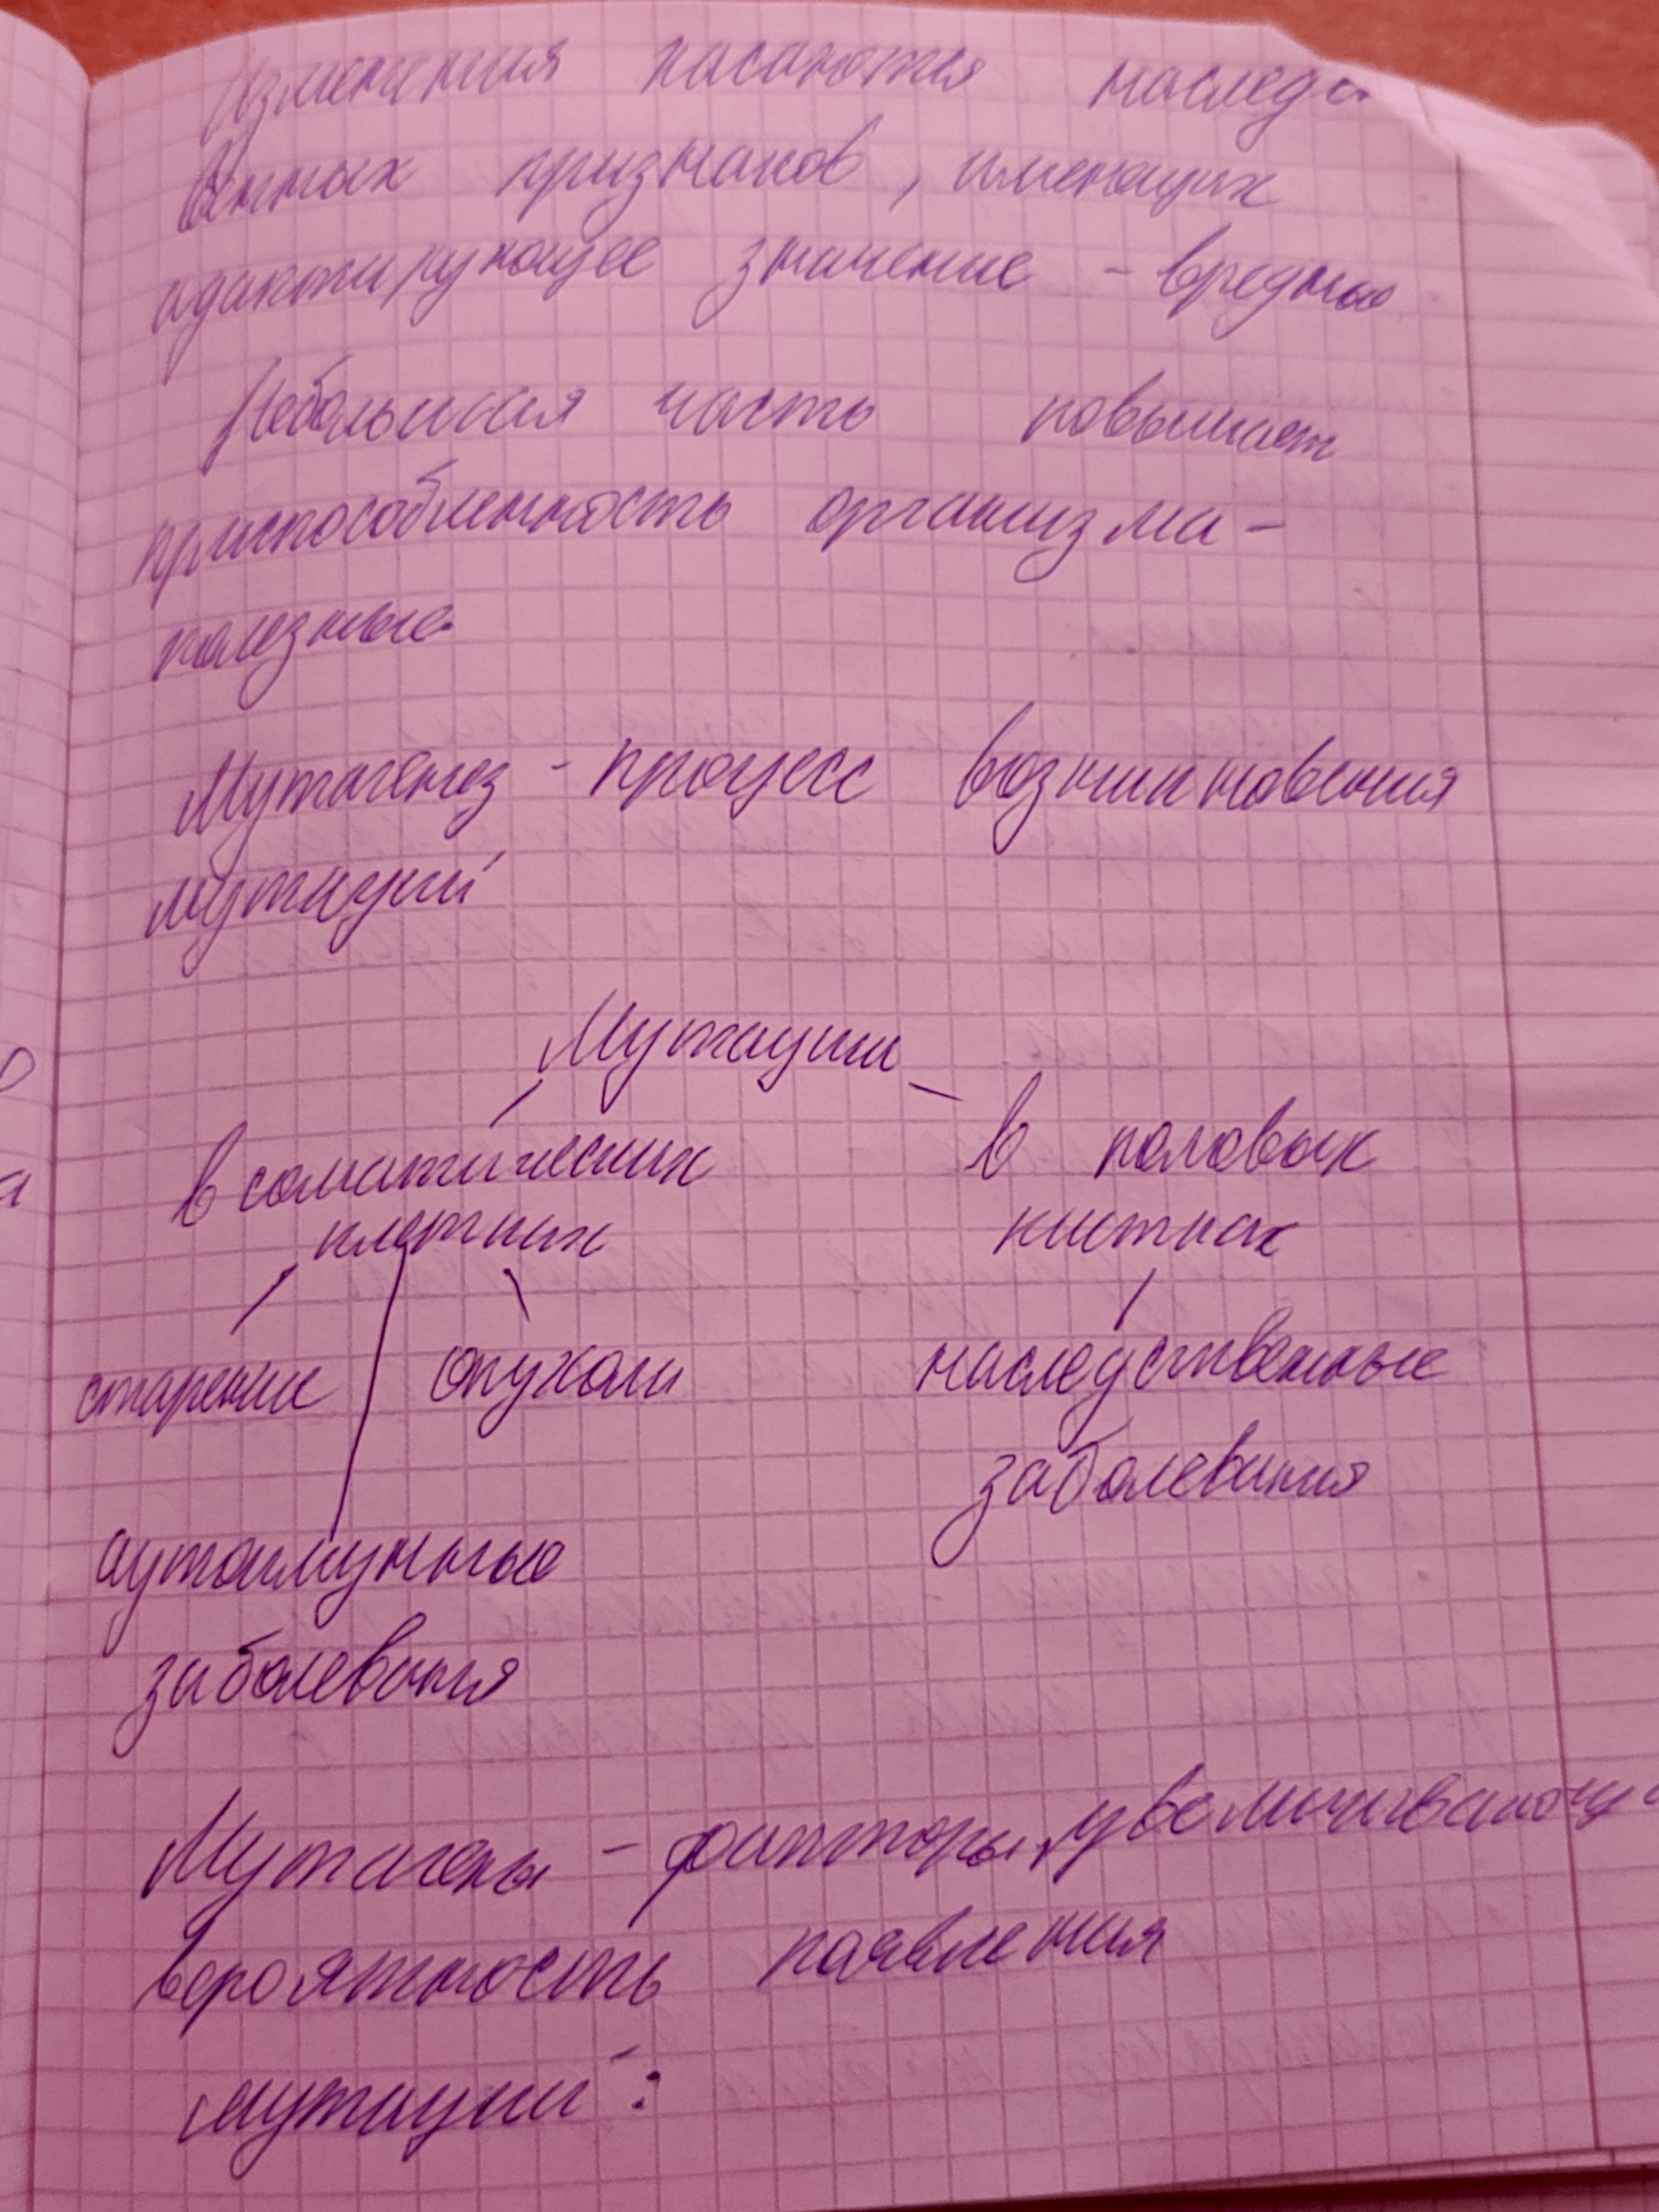 Изменения касаются наследс
венных признаков, имеющих
адаптирующее значение - вредные
Небольшая часть повышает
приспособленность организма -
полезные.
Мутагенез - процесс возникновения
мутаций
Мутации
в соматических в половых
клетках клетках
старение опухоли наследственные
заболевания
аутоимунные
заболевания
Мутагены - факторы, увеличивающ
вероятность появления
мутаций: